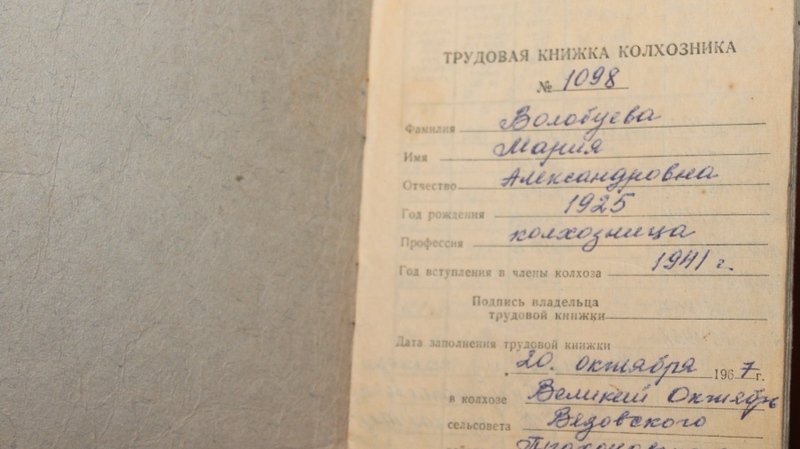 ТРУДОВАЯ КНИЖКА КОЛХОЗНИКА
№ 1098
Фамилия Волобуева
Имя Мария
Отчество Александровна
Год рождения 1925
Профессия колхозница
Год вступления в члены колхоза 1941 г.
Подпись владельца
трудовой книжки
Дата заполнения трудовой книжки
20. октября 1967 г.
в колхозе Великий Октябрь
сельсовета Вядовского